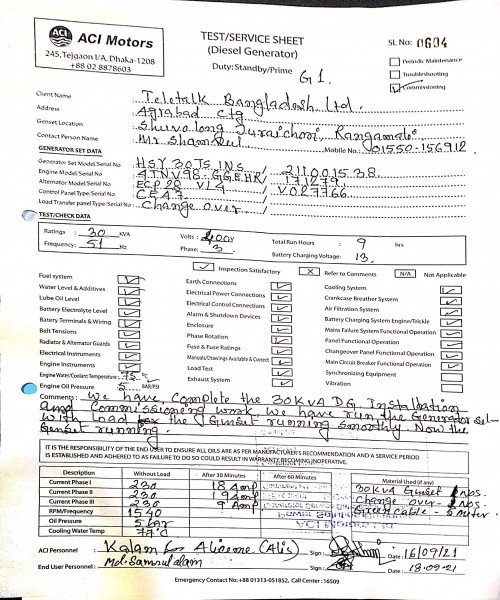 ACI
ACI Motors
245, Tejgaon I/A, Dhaka-1208
+88 02 8878603
TEST/SERVICE SHEET
(Diesel Generator)
Duty: Standby/Prime G1.
SL No: 0604
Periodic Maintenance
Troubleshooting
Commissioning
Client Name Teletalk Bangladesh Ltd.
Address Agrabad Ctg
Genset Location Shuvolong, Juraichori, Rangamati
Contact Person Name Mr. Shamsul Mobile No. 01550-156912
GENERATOR SET DATA
Generator Set Model/Serial No HSY 30 TS INS / 211001538
Engine Model/Serial No 4TNV98-GGEHR/ 171279
Alternator Model/Serial No ECP 28 VL4 / V027766
Control Panel Type/Serial No
Load Transfer panel Type/Serial No Change over
TEST/CHECK DATA
Ratings : 30 KVA Volts : 400V Total Run Hours : 9 hrs
Frequency: 51 Hz Phase: 3 Battery Charging Voltage: 13.
Inspection Satisfactory X Refer to Comments N/A Not Applicable
Fuel system
Water Level & Additives
Lube Oil Level
Battery Electrolyte Level
Battery Terminals & Wiring
Belt Tensions
Radiator & Alternator Guards
Electrical Instruments
Engine Instruments
Engine Water/Coolant Temperature: 75 °C
Engine Oil Pressure 5 BAR/PSI
Earth Connections
Electrical Power Connections
Electrical Control Connections
Alarm & Shutdown Devices
Enclosure
Phase Rotation
Fuse & Fuse Ratings
Manuals/Drawings Available & Correct
Load Test
Exhaust System
Cooling System
Crankcase Breather System
Air Filtration System
Battery Charging System Engine/Trickle
Mains Failure System Functional Operation
Panel Functional Operation
Changeover Panel Functional Operation
Main Circuit Breaker Functional Operation
Synchronizing Equipment
Vibration
Comments : We have complete the 30 KVA DG Installation
and Commissioning work. We have run the Generator set
with Load the Genset running smoothly. Now the
Genset running
IT IS THE RESPONSIBILITY OF THE END USER TO ENSURE ALL OILS ARE AS PER MANUFACTURER'S RECOMMENDATION AND A SERVICE PERIOD
IS ESTABLISHED AND ADHERED TO AS FAILURE TO DO SO COULD RESULT IN WARRANTY BECOMING INOPERATIVE.
Description Without Load After 30 Minutes After 60 Minutes Material Used (if any)
Current Phase I 230 18 Amp 30 KVA Genset 1 nos.
Current Phase II 230 9 Amp Change over 1 nos.
Current Phase III 230 9 Amp Green cable - 5 meter.
RPM/Frequency 1540
Oil Pressure 5 bar
Cooling Water Temp 77°C
ACI Personnel : Kalam for (Alis) Sign : Date : 16/09/21
End User Personnel : Md. Samsul alam Sign : Date : 18-09-21
Emergency Contact No: +88 01313-051852, Call Center : 16509